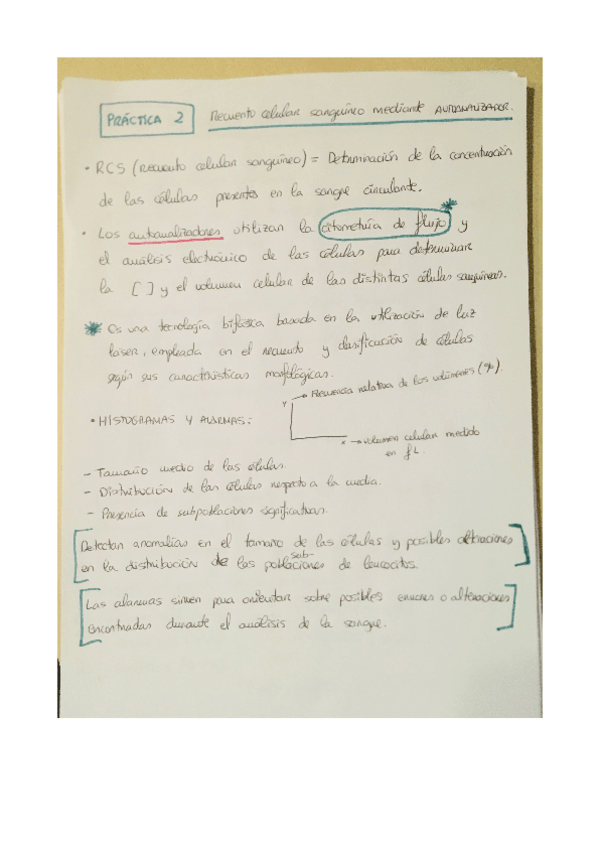 PRÁCTICA 2
Recuento celular sanguíneo mediante AUTOANALIZADOR.
• RCS (Recuento celular sanguíneo) = Determinación de la concentración
de las células presentes en la sangre circulante.
• Los autoanalizadores utilizan la citometría de flujo * y
el análisis electrónico de las células para determinar
la [ ] y el volumen celular de las distintas células sanguíneas.
* Es una tecnología bifásica basada en la utilización de luz
láser, empleada en el recuento y clasificación de células
según sus características morfológicas.
y → Frecuencia relativa de los volúmenes (%).
• HISTOGRAMAS Y ALARMAS:
x → volumen celular medido
en fL.
- Tamaño medio de las células.
- Distribución de las células respecto a la media.
- Presencia de subpoblaciones significativas.
Detectan anomalías en el tamaño de las células y posibles alteraciones
en la distribución de las sub-poblaciones de leucocitos.
Las alarmas sirven para orientar sobre posibles errores o alteraciones
encontradas durante el análisis de la sangre.